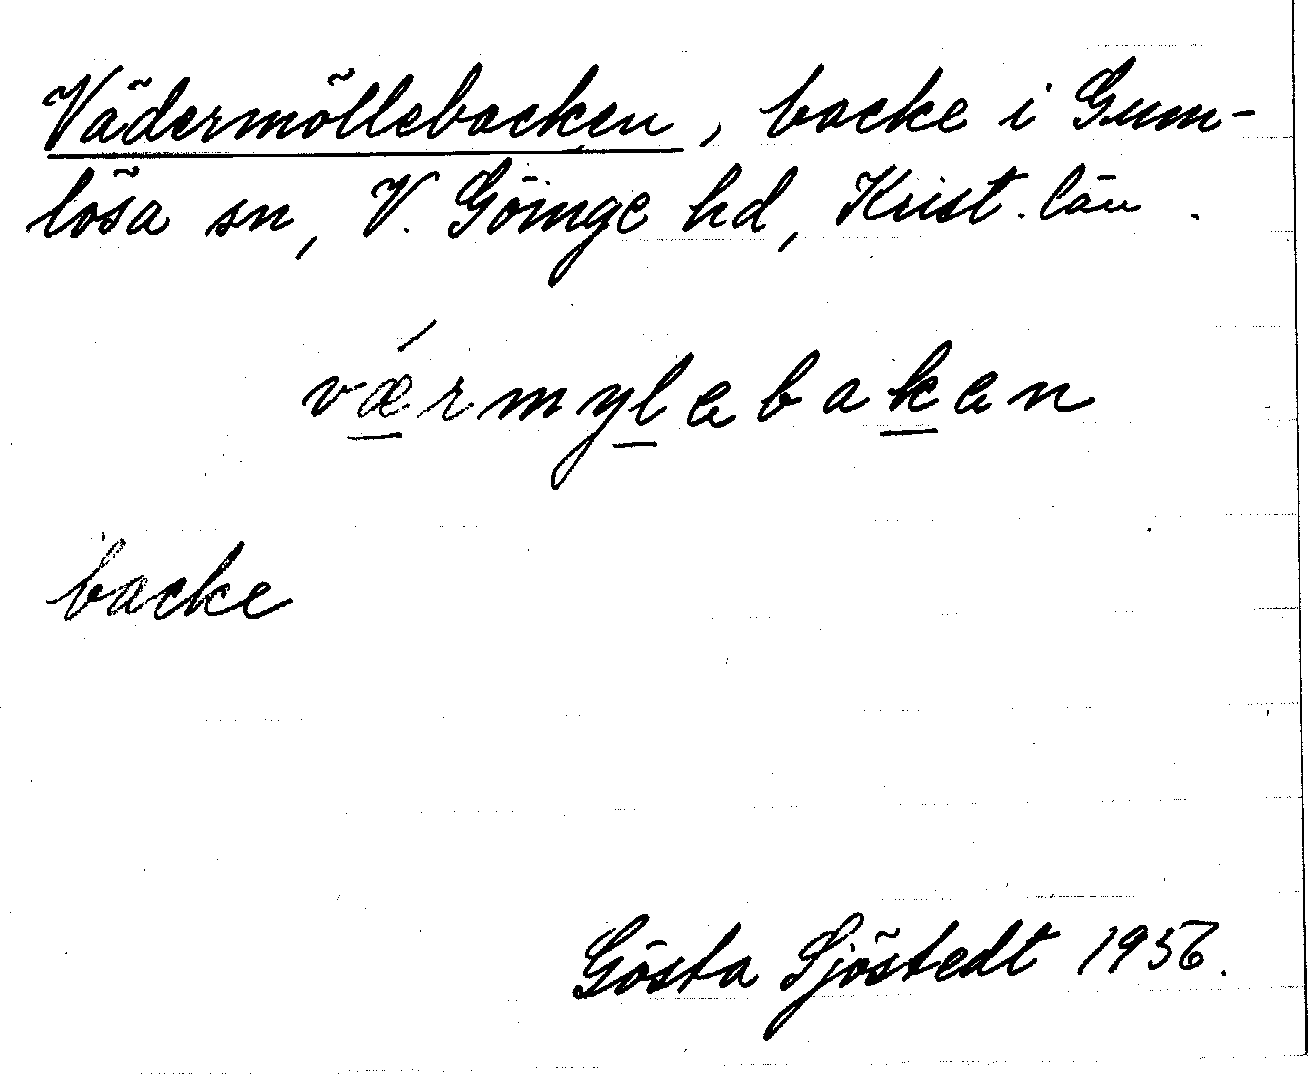 Vädermöllebacken, backe i Gum-
lösa sn, V. Göinge hd, Krist. län.
vǽrmyləbakən
backe
Gösta Sjöstedt 1956.